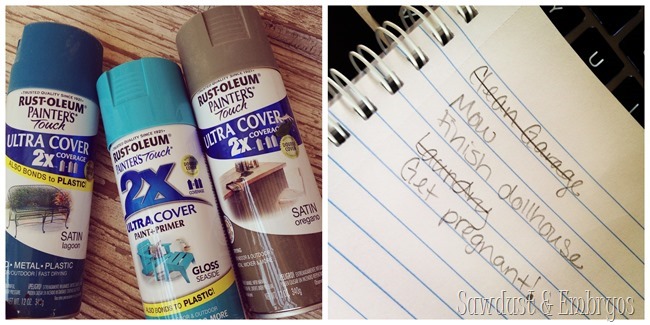 TRUSTED QUALITY SINCE 1921
RUST-OLEUM
PAINTER'S
Touch
ULTRA COVER
2X COVERAGE
ALSO BONDS TO PLASTIC!
SATIN
lagoon
METAL • PLASTIC
FAST DRYING
RUST-OLEUM
PAINTER'S Touch
2X
ULTRA COVER
PAINT + PRIMER
GLOSS
SEASIDE
ALSO BONDS TO PLASTIC!
RUST-OLEUM
PAINTERS'
Touch
ULTRA COVER
2X COVERAGE
SATIN
oregano
340g
Clean Garage
Mow
Finish dollhouse
Laundry
Get pregnant!
Y
U
Sawdust & Embryos